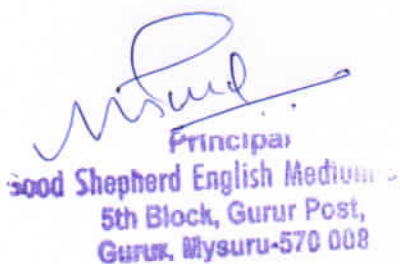 Principal
Good Shepherd English Medium
5th Block, Gurur Post,
Gurur, Mysuru-570 008